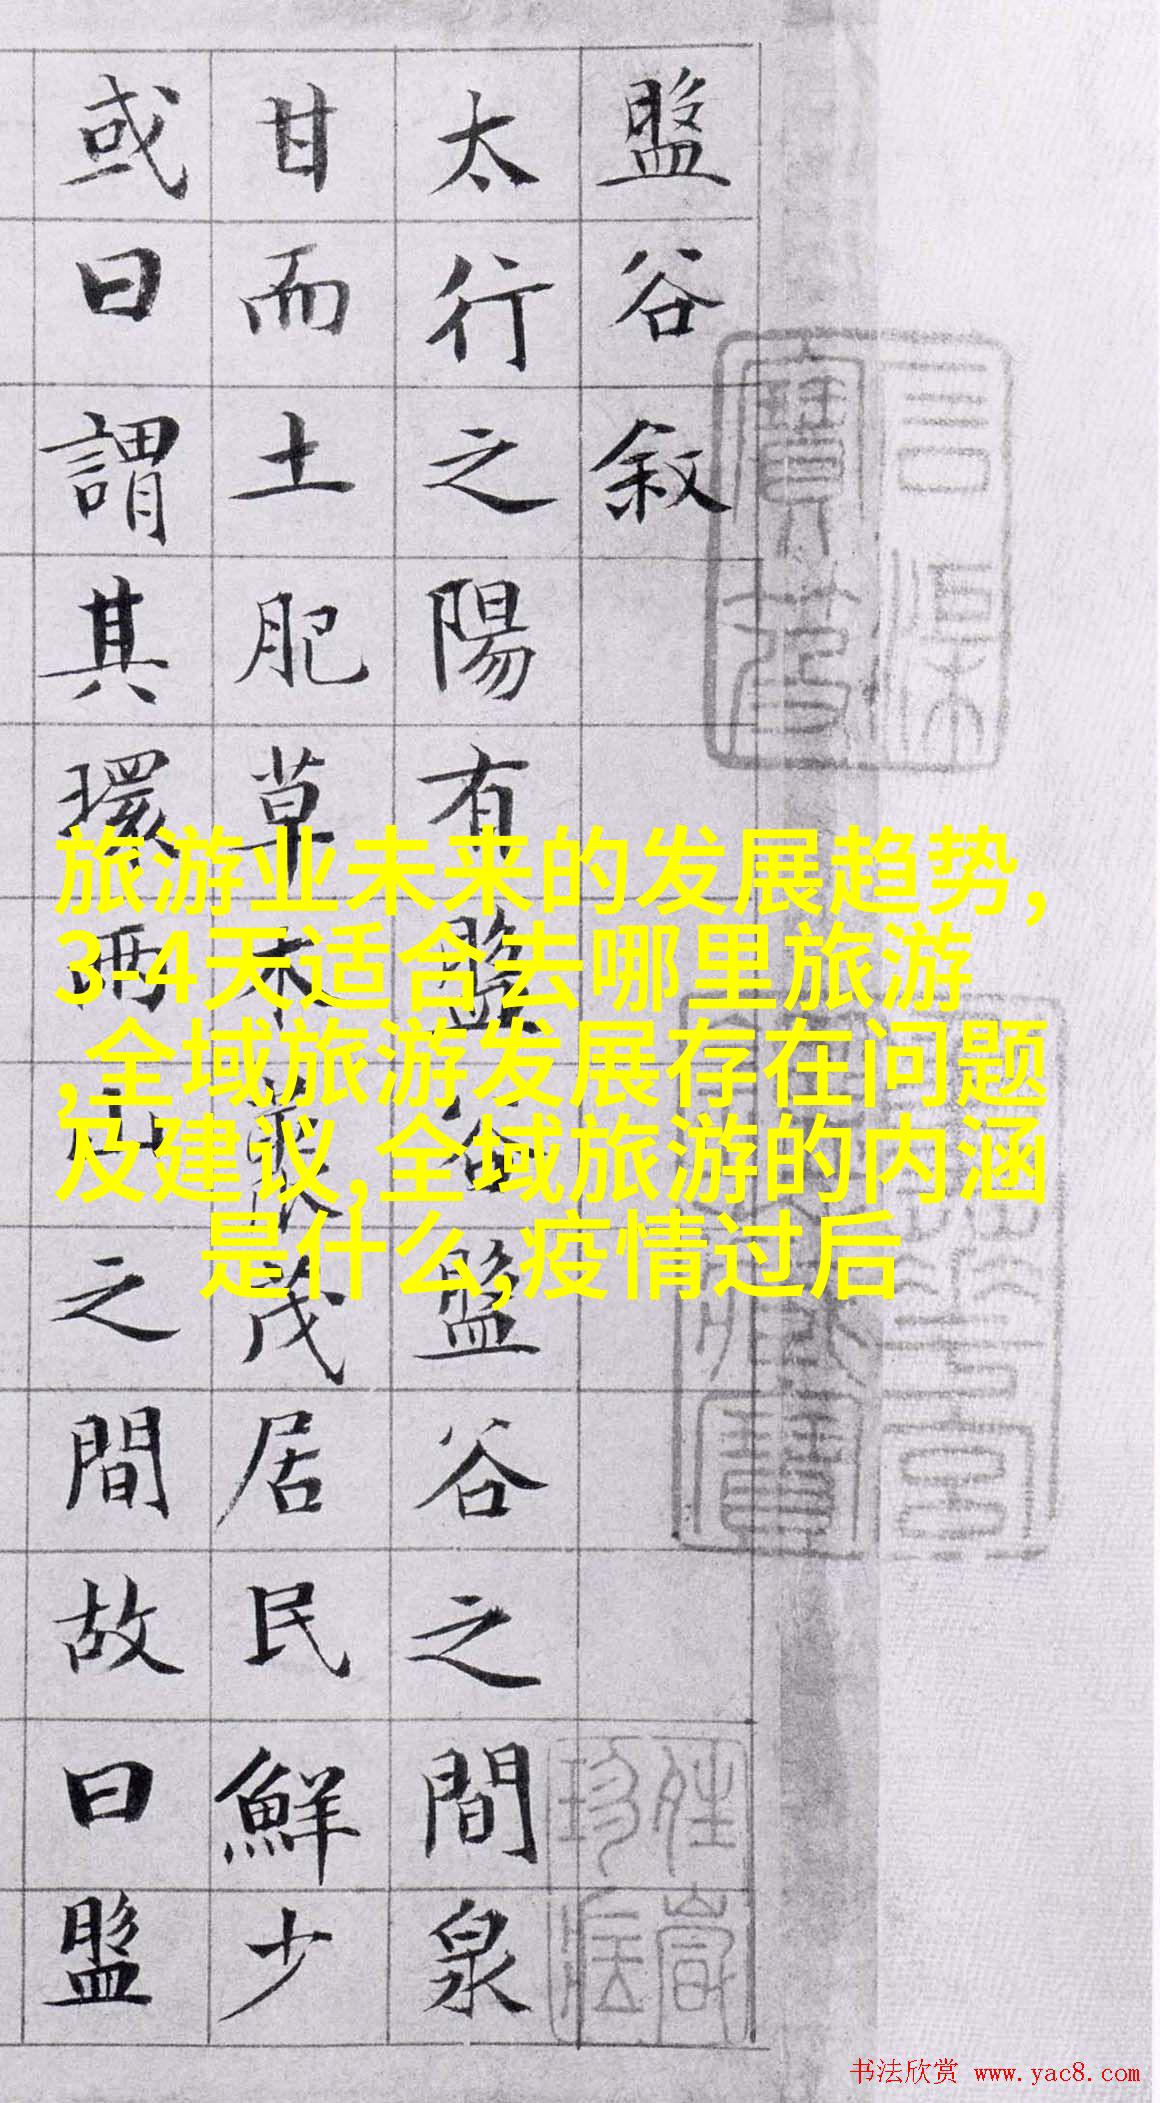 盤谷叙
太行之陽有盤谷盤谷之間泉
甘而土肥草木藂茂居民鮮少
或曰謂其環兩山之間故曰盤
旅游业未来的发展趋势,
3-4天适合去哪里旅游
,全域旅游发展存在问题
及建议,全域旅游的内涵
是什么,疫情过后
书法欣赏 www.yac8.com